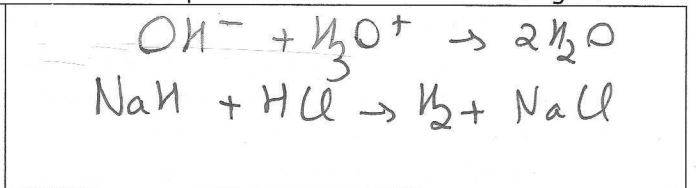 OH⁻ + H₃O⁺ → 2H₂O
NaH + HCl → H₂ + NaCl